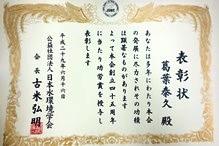 表彰状
葛葉泰久 殿
あなたは多年にわたり本会
の発展に尽力されその功績
は顕著なものがあります
よって本会創立四十五周年
に当たり功労賞を授与し
表彰します
平成二十九年六月十六日
公益社団法人日本水環境学会
会長 古米弘明